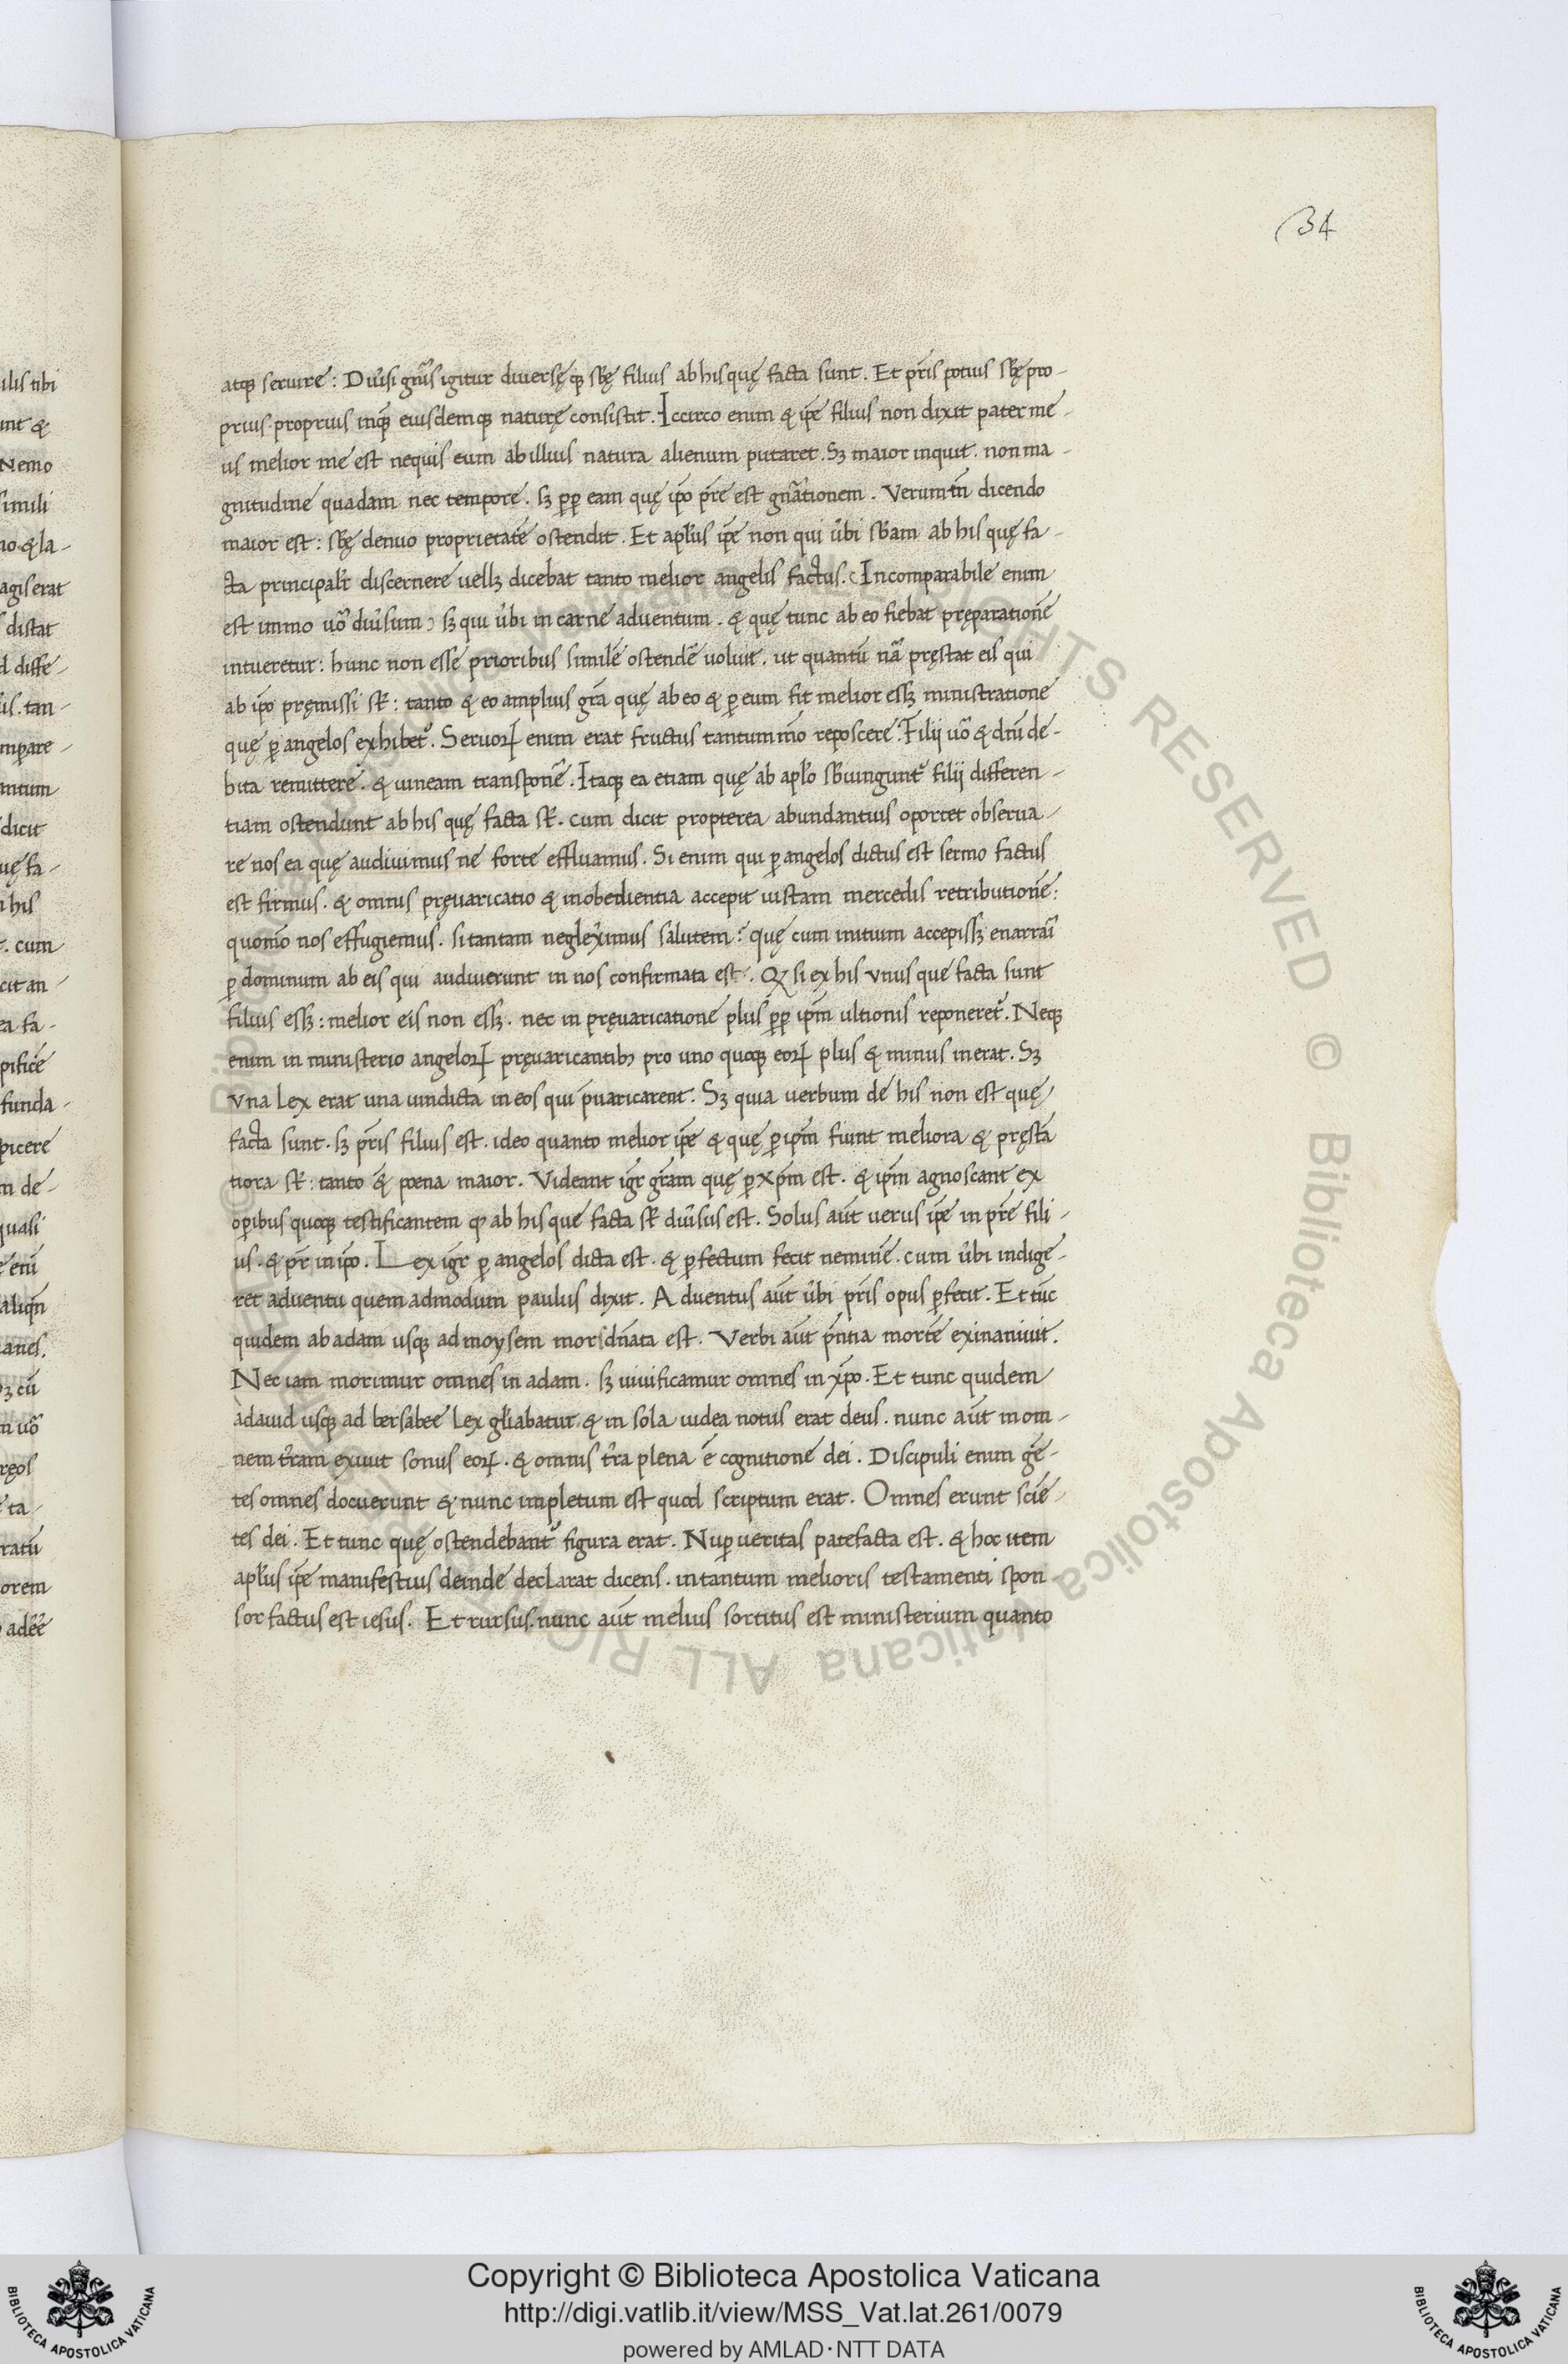 34
atq; seruire: Diũsi gñis igitur diuersęq; sb̃ę filius ab his quę facta sunt. Et pr̃is potius sb̃ę pro-
prius. proprius inq̃ eiusdemq; naturę consistit. Iccirco enim & ip̃e filius non dixit pater me-
us melior me est nequis eum ab illius natura alienum putaret. Sꝫ maior inquit. non ma-
gnitudine quadam nec tempore. sꝫ pp̃ eam quę ip̃o pr̃e est gñationem. Verumtñ dicendo
maior est: sb̃ę denuo proprietatẽ ostendit. Et apl̃us ip̃e non qui ũbi sb̃am ab his quę fa-
cta principalr̃ discernere uellꝫ dicebat tanto melior angelis factus. (Incomparabile enim
est immo uõ diũsum) sꝫ qui ũbi in carnẽ aduentum. & quę tunc ab eo fiebat pręparationẽ
intueretur: hunc non esse prioribus similẽ ostendẽ uoluit. ut quantũ nã pręstat eis qui
ab ip̃o pręmissi st̃: tanto & eo amplius grã quę ab eo & ꝑ eum fit melior essꝫ ministratione
quę ꝑ angelos exhibet᷑. Seruoꝝ enim erat fructus tantummõ reposcere. Filii uõ & dñi de-
bita remittere. & uineam transponẽ. Itaq; ea etiam quę ab apl̃o sb̃iungunt᷑ filii differen-
tiam ostendunt ab his quę facta st̃. cum dicit propterea abundantius oportet obserua-
re nos ea quę audiuimus ne forte effluamus. Si enim qui ꝑ angelos dictus est sermo factus
est firmus. & omnis pręuaricatio & inobedientia accepit iustam mercedis retributionẽ:
quomõ nos effugiemus. si tantam neglexĩmus salutem? quę cum initium accepissꝫ enarrari
ꝑ dominum ab eis qui audiuerunt in nos confirmata est. Qꝫ si ex his unus que facta sunt
filius essꝫ: melior eis non essꝫ. nec in pręuaricatione plus pp̃ ip̃m ultionis reponeret᷑. Neq;
enim in ministerio angeloꝝ pręuaricantibꝫ pro uno quoq; eoꝝ plus & minus inerat. Sꝫ
vna Lex erat una uindicta in eos qui p̃uaricarent. Sꝫ quia uerbum de his non est quę
facta sunt. sꝫ pr̃is filius est. ideo quanto melior ip̃e & quę ꝑ ip̃m fiunt meliora & pręstã
tiora st̃: tanto & poena maior. Videant igr̃ gr̃am quę ꝑ xp̃m est. & ip̃m agnoscant ex
oꝑibus quoq; testificantem ꝙ ab his que facta st̃ diũsus est. Solus aũt uerus ip̃e in pr̃e fili-
us. & pr̃ in ip̃o. Lex igr̃ ꝑ angelos dicta est. & ꝑfectum fecit neminẽ. cum ũbi indige-
ret aduentu quem admodum paulus dixit. Aduentus aũt ũbi pr̃is opus ꝑfecit. Et tũc
quidem ab adam usq; ad moysem mors dñata est. Verbi aũt p̃ntia mortẽ exinaniuit.
Nec iam morimur omnes in adam. sꝫ uiuificamur omnes in xp̃o. Et tunc quidem
a dauid usq; ad bersabee Lex gl̃iabatur & in sola iudea notus erat deus. nunc aũt in om-
nem tr̃am exiuit sonus eoꝝ. & omnis tr̃a plena ẽ cognitione dei. Discipuli enim gẽ-
tes omnes docuerunt & nunc impletum est quod scriptum erat. Omnes erunt sciẽ-
tes dei. Et tunc quę ostendebant᷑ figura erat. Nuꝑ ueritas patefacta est. & hoc item
apl̃us ip̃e manifestius deinde declarat dicens. in tantum melioris testamenti spon
sor factus est iesus. Et rursus. nunc aũt melius sortitus est ministerium quanto
Copyright © Biblioteca Apostolica Vaticana
http://digi.vatlib.it/view/MSS_Vat.lat.261/0079
powered by AMLAD·NTT DATA
BIBLIOTECA APOSTOLICA VATICANA
BIBLIOTECA APOSTOLICA VATICANA
© Biblioteca Apostolica Vaticana ALL RIGHTS RESERVED